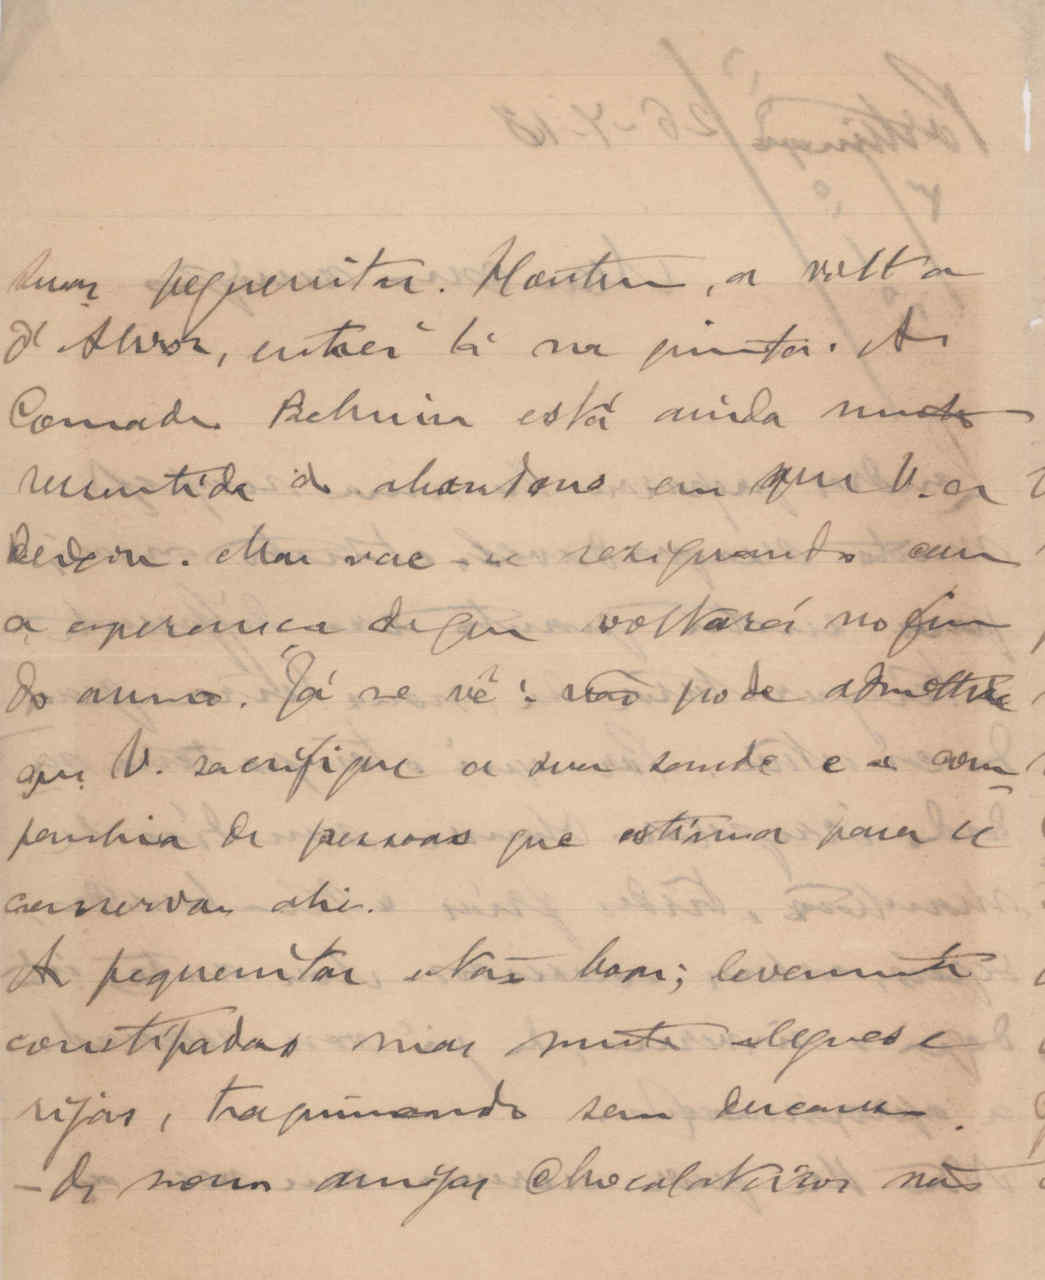 suas pequenitas. Hontem, a volta
d'Alvor, entrei lá na quinta. A
Comadre está ainda muito
resentida do abandono em que V. a
deixou. Mas vae-se rezignando com
a esperança de que voltará no fim
do anno. Já se vê: não pode admettir
que V. sacrifique a sua saude e a com-
panhia de pessoas que estima para se
conservar ahi.
As pequenitas estão boas; levemente
constipadas mas muito alegres e
rijas, traquinando sem descanso.
- Os nossos amigos Chocolateiros não
Portimão 26-7-13